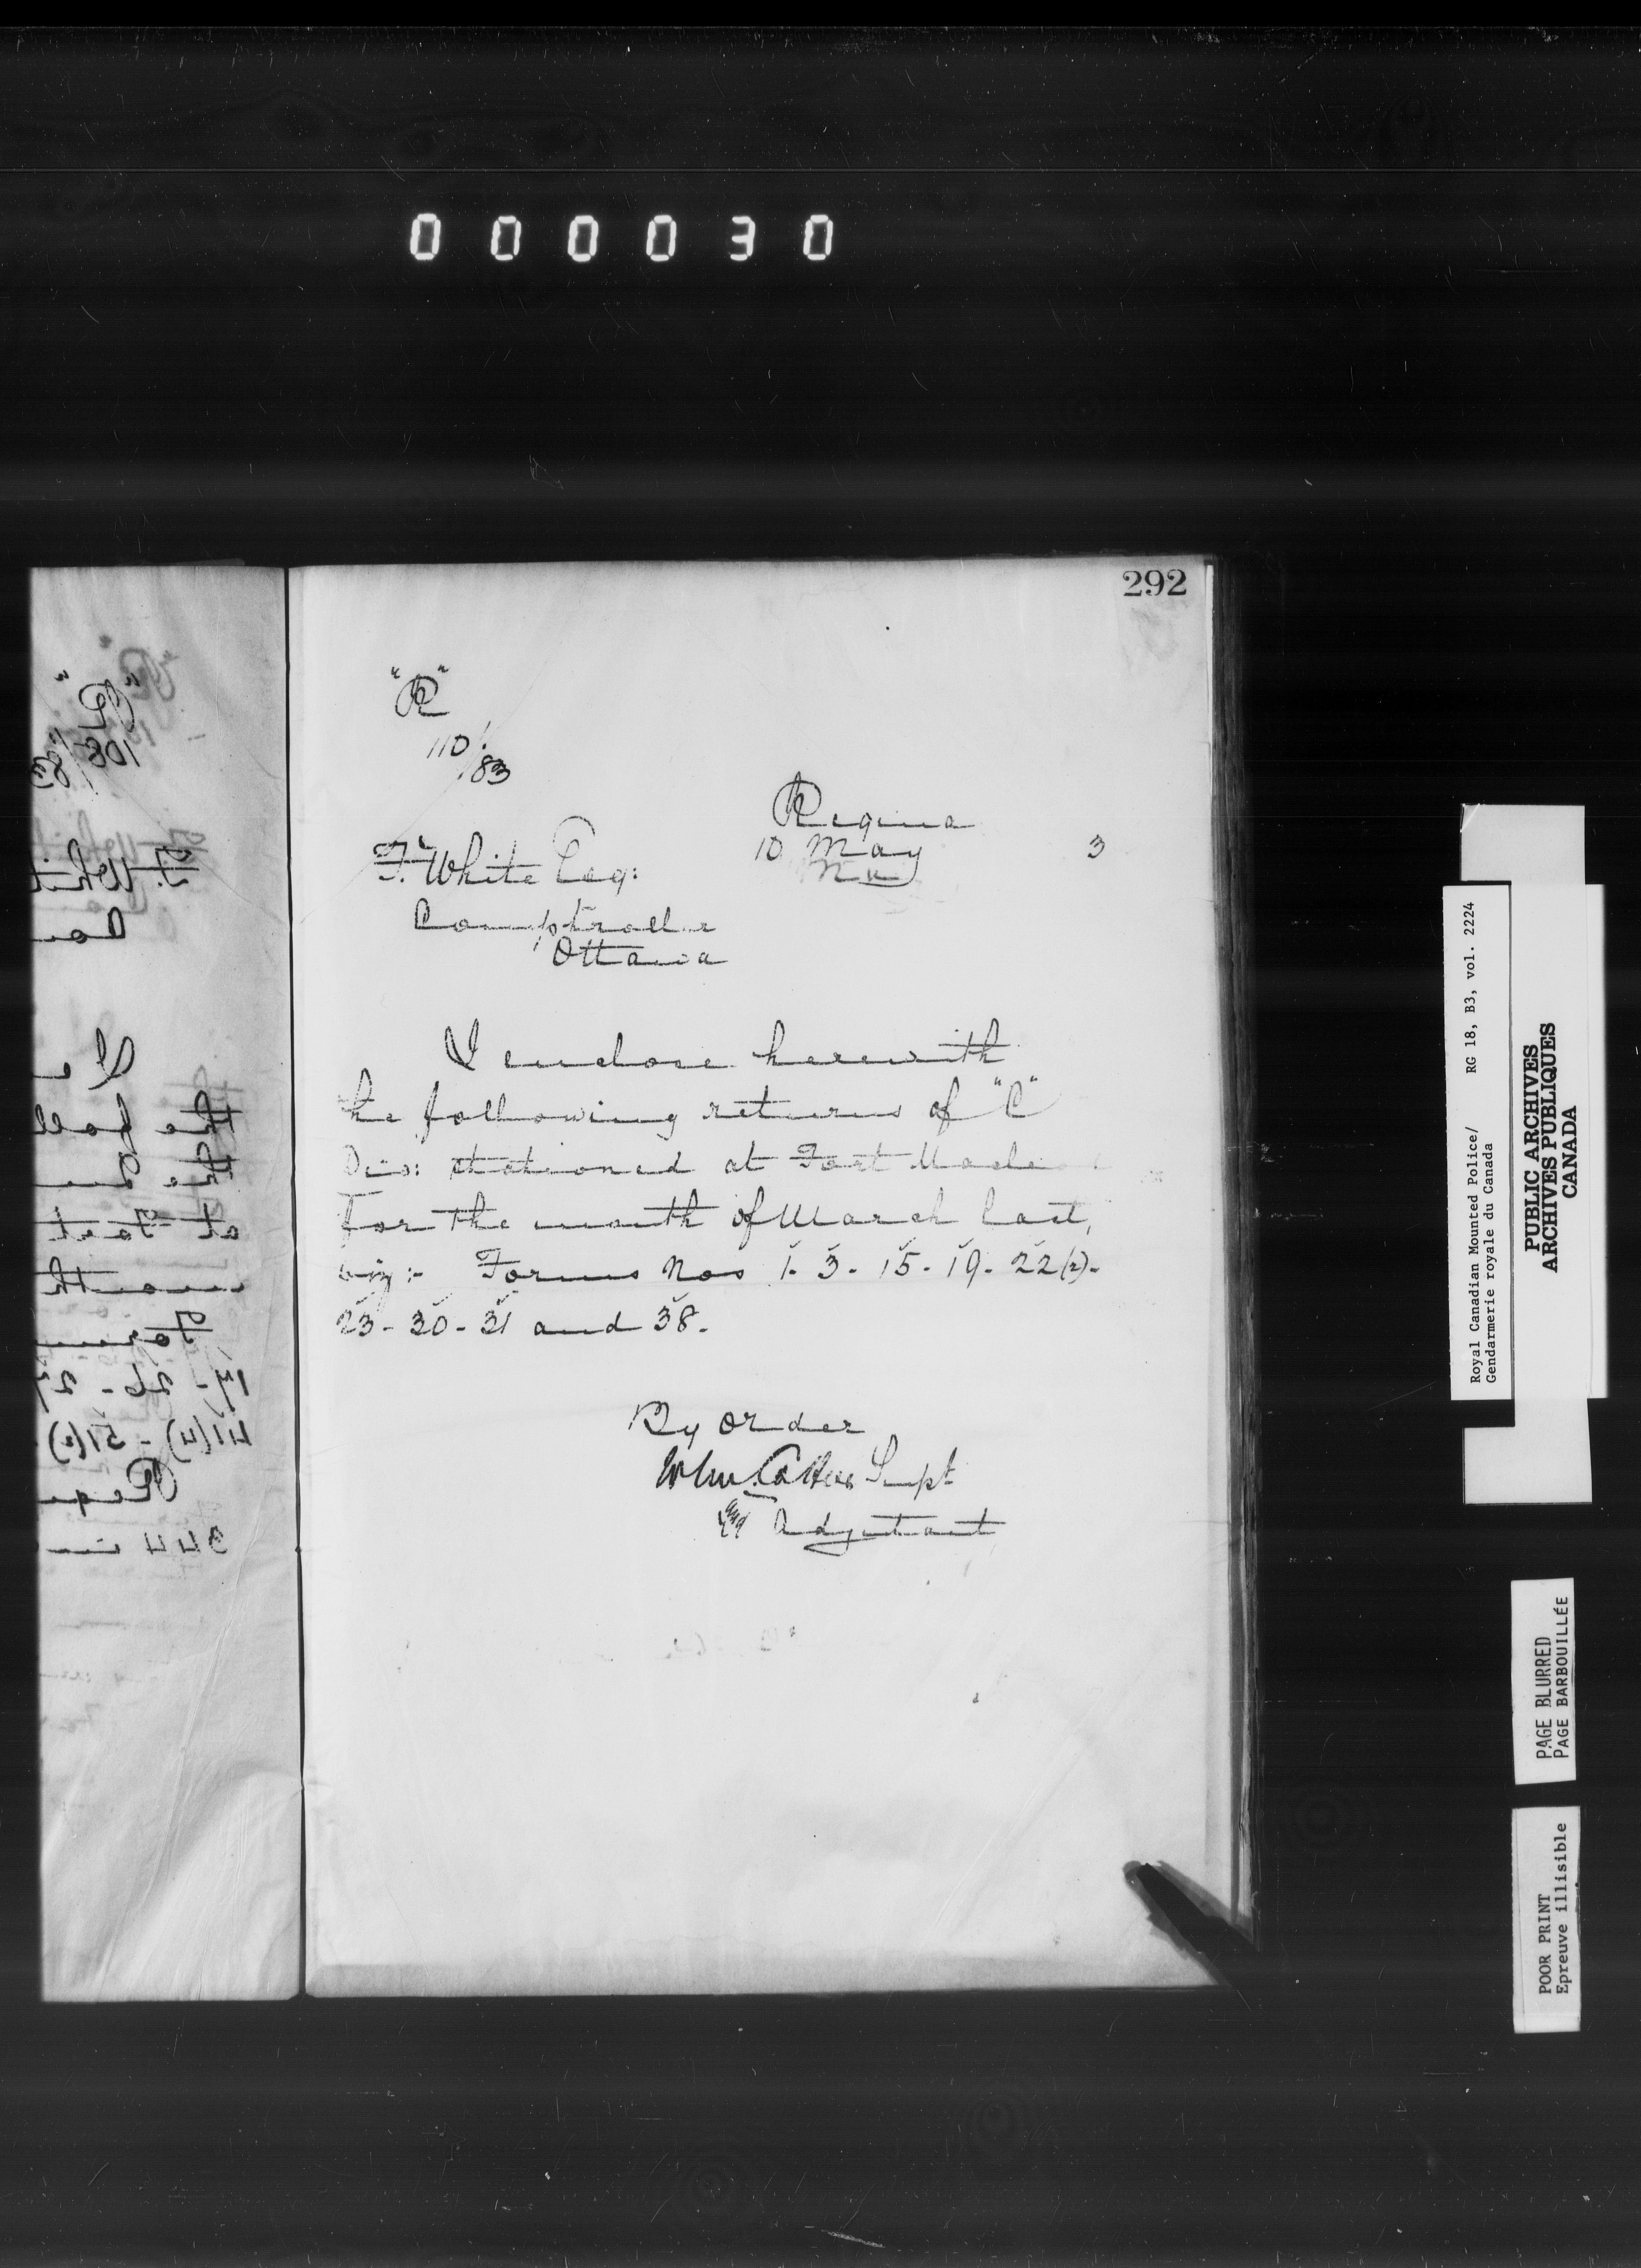 000030
292
"R"
110/83
Regina
10 May 3
F. White Esq:
Comptroller
Ottawa
I enclose herewith
the following returns of "C"
Div: stationed at Fort Macleod
for the month of March last,
viz:- Forms Nos 1- 3- 15- 19- 22(2)-
23- 30- 31 and 38.
By order
Supt
Adjutant
"R"
108/83
F. Whit
Com
I e
the foll
at Fort
month
Form
41(4) - 51(2)
344
Royal Canadian Mounted Police/ RG 18, B3, vol. 2224
Gendarmerie royale du Canada
PUBLIC ARCHIVES
ARCHIVES PUBLIQUES
CANADA
PAGE BLURRED
PAGE BARBOUILLÉE
POOR PRINT
Epreuve illisible